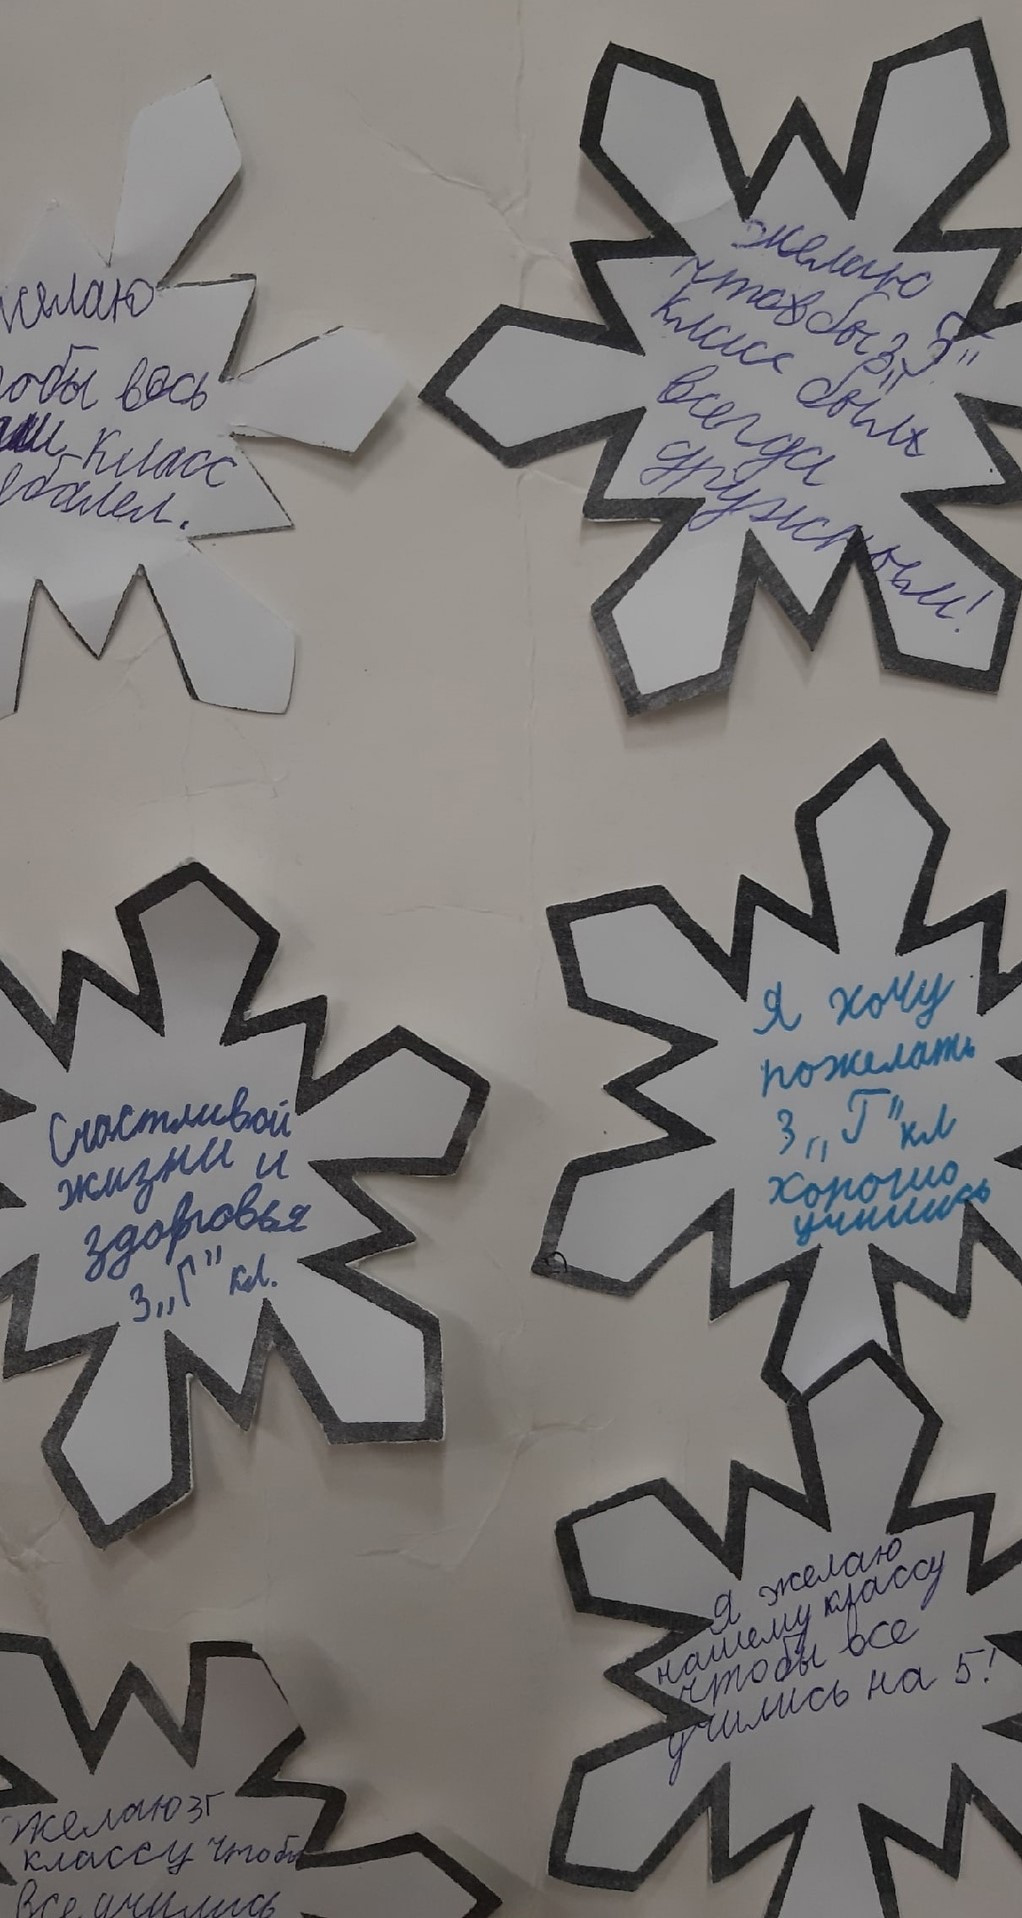 желаю
чтобы весь
наш класс
неболел.
желаю
чтовбы 3„Г"
класс был
всегда
дружным!
Счастливой
жизни и
здоровья
3„Г" кл.
Я хочу
пожелать
3„Г" кл
хорошо
учиись
Я желаю
нашему классу
чтобы все
учились на 5!
Желаю 3г
классу чтобы
все учились